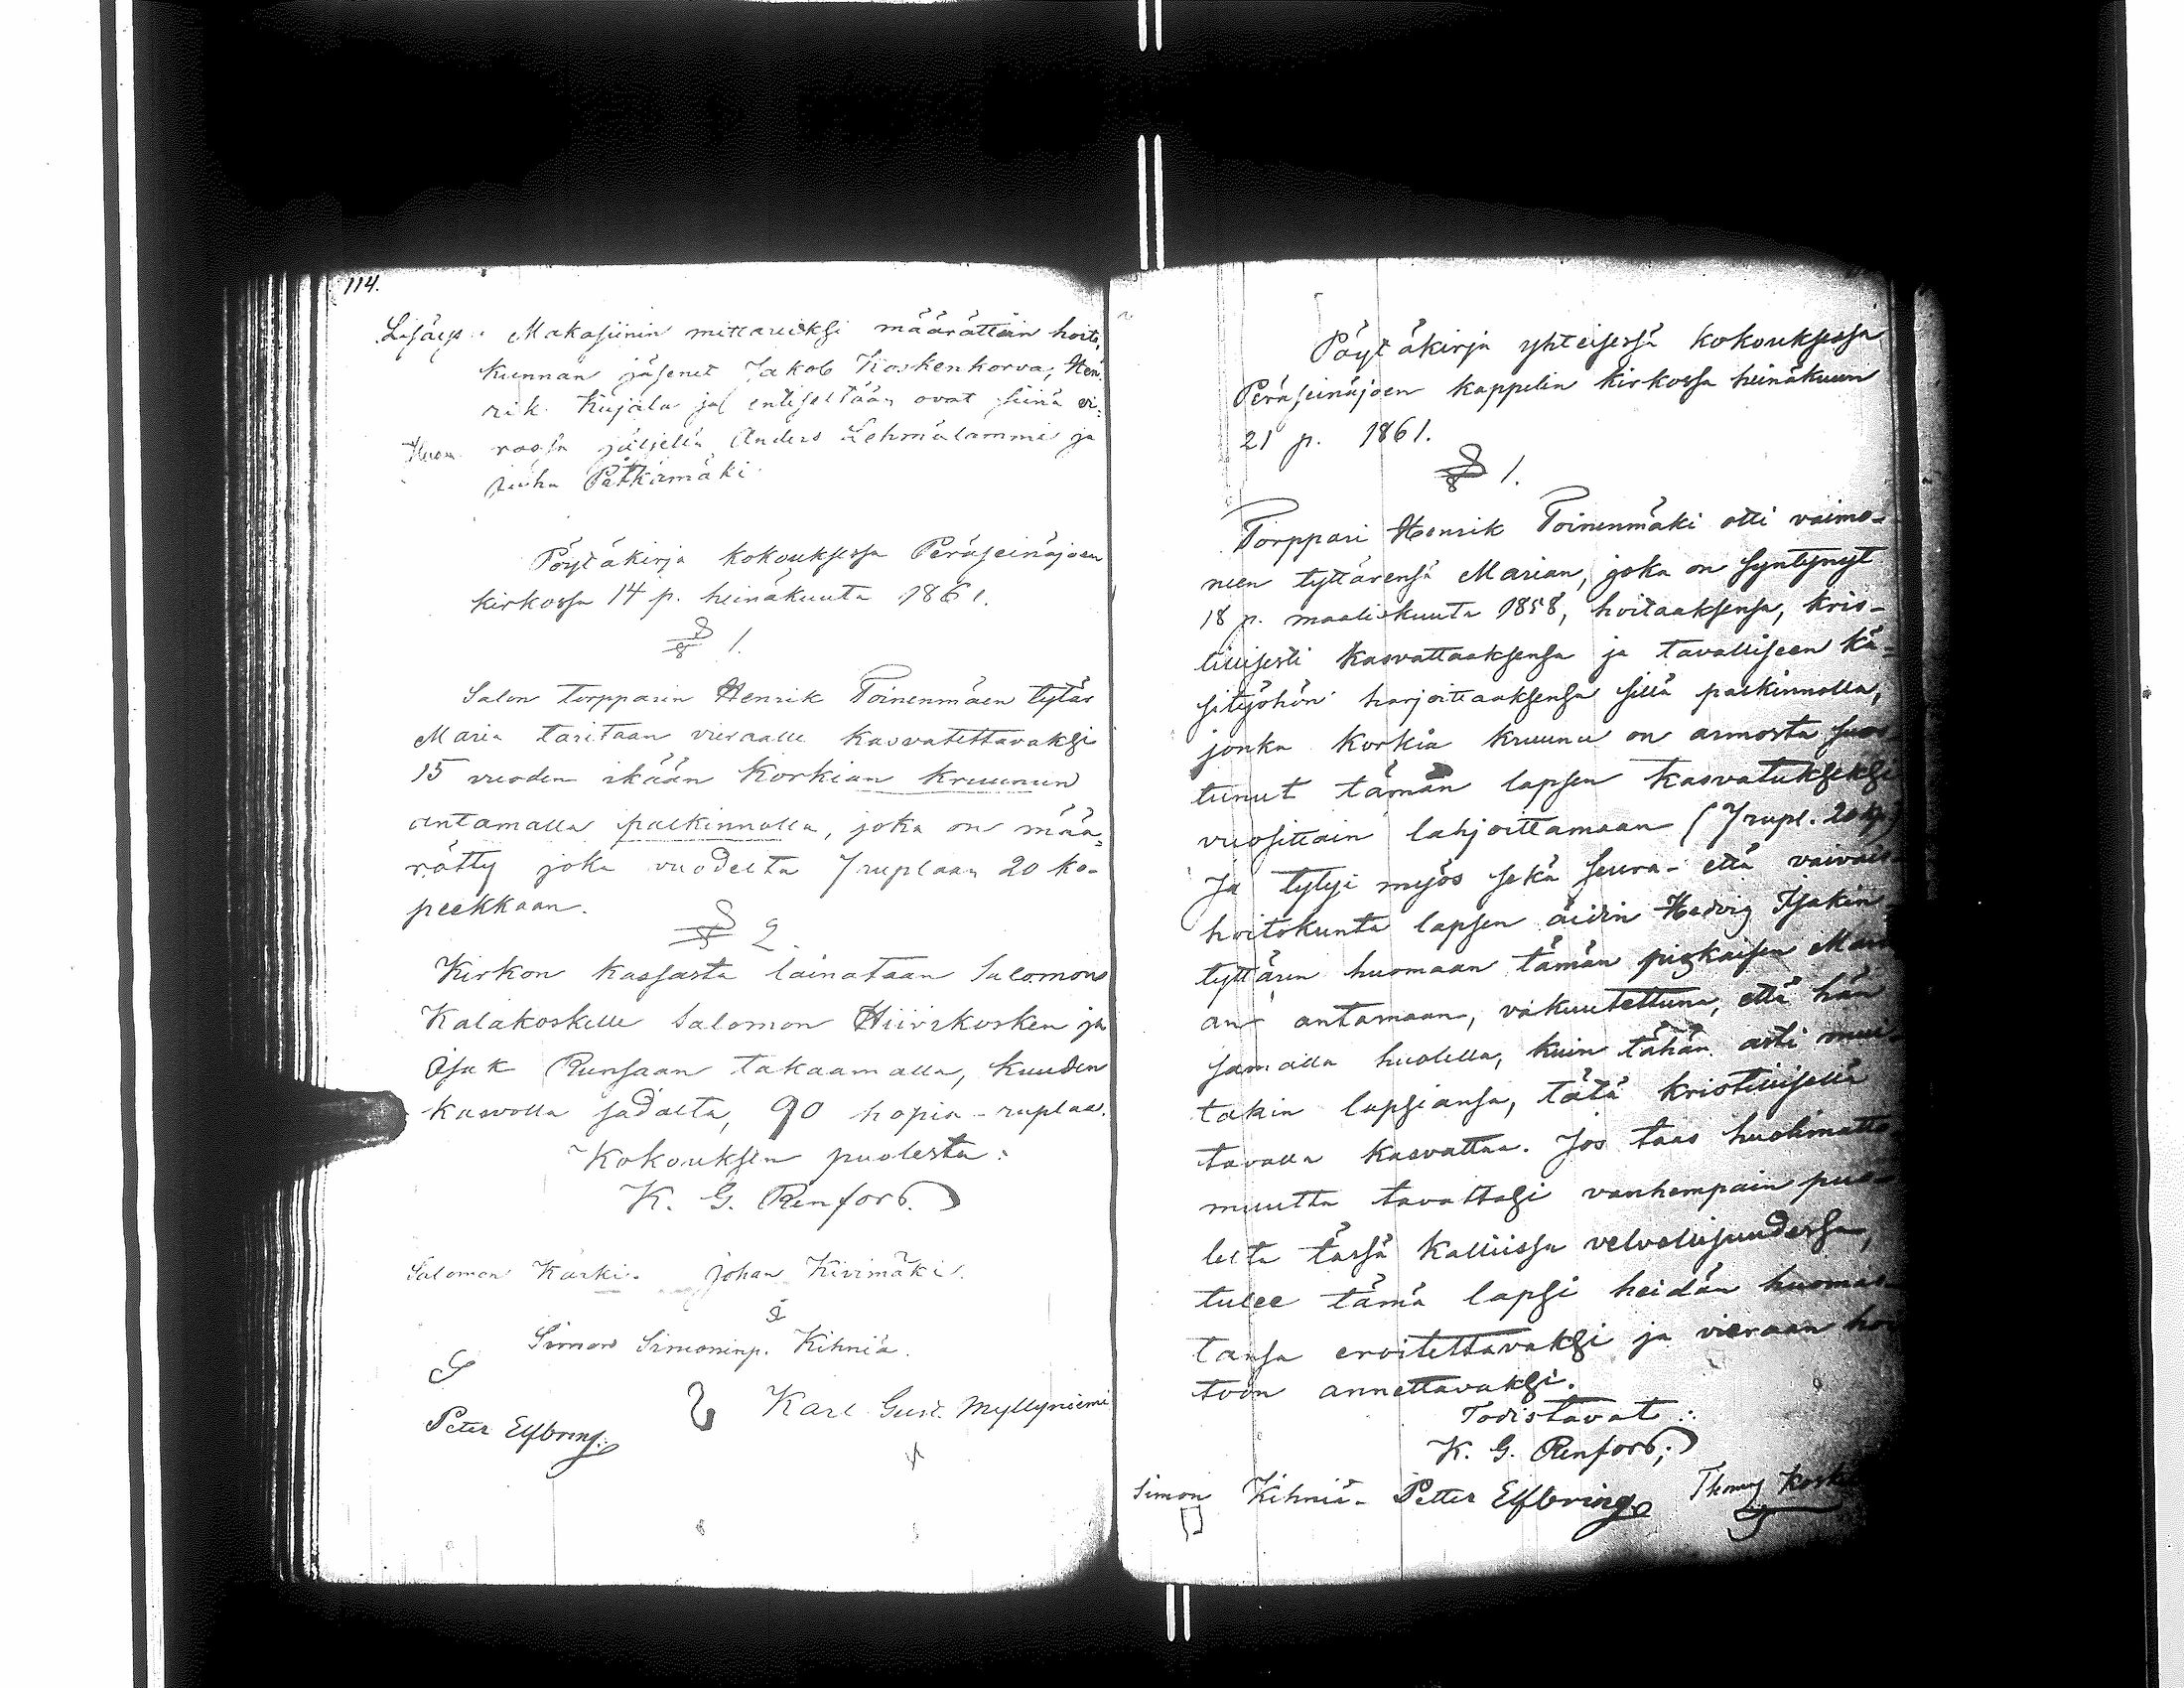 114.
Lisäys: Makasiinin mittariksi määrättiin hoito-
kunnan jäsenet Jakob Koskenkorva, Hen-
rik Kujala ja entiseltään ovat siinä vi-
Huom. rassa jäljellä Anders Lehmälammi ja
Juha Pätkämäki.
Pöytäkirja kokouksessa Peräseinäjoen
kirkossa 14 p. heinäkuuta 1861.
§ 1.
Salon torpparin Henrik Toinenmäen tytär
Maria taritaan vieraalle kasvatettavaksi
15 vuoden ikään Korkian kruunun
antamalla palkinnolla, joka on mää-
rätty joka vuodelta 7 ruplaan 20 ko-
peekkaan.
§ 2.
Kirkon kassasta lainataan Salomon
Kalakoskelle Salomon Hiirikosken ja
Isak Runsaan takaamalla, kuuden
kasvolla sadalta, 90 hopia-ruplaa.
Kokouksen puolesta:
K. G. Renfors.
Salomon Karki. Johan Kivimäki.
Simon Simoninp. Kihniä.
Peter Elfbring.
Karl Gust. Myllyniemi
Pöytäkirja yhteisessä kokouksessa
Peräseinäjoen kappelin kirkossa heinäkuun
21 p. 1861.
§ 1.
Torppari Henrik Toinenmäki otti vaimo-
neen tyttärensä Marian, joka on syntynyt
18 p. maaliskuuta 1858, hoitaaksensa, kris-
tillisesti kasvattaaksensa ja tavalliseen kä-
sityöhön harjoittaaksensa sillä palkinnolla,
jonka Korkia kruunu on armosta suos-
tunut tämän lapsen kasvatukseksi
vuosittain lahjoittamaan (7 rupl. 20 kp.)
Ja tytyi myös sekä seura- että vaivais-
hoitokunta lapsen äidin Hedvig Isakin-
tyttären huomaan tämän piskaisen Mari-
an antamaan, vakuutettuna, että hän
samalla huolella, kuin tähän asti mui-
takin lapsiansa, tätä kristillisellä
tavalla kasvattaa. Jos taas huolimatto-
muutta tavattasi vanhempain puo-
lelta tässä kalliissa velvollisuudessa,
tulee tämä lapsi heidän huomas-
tansa eroitettavaksi ja vieraan hoi-
toon annettavaksi.
Todistavat:
K. G. Renfors;
Simon Kihniä. Petter Elfbring. Thomas